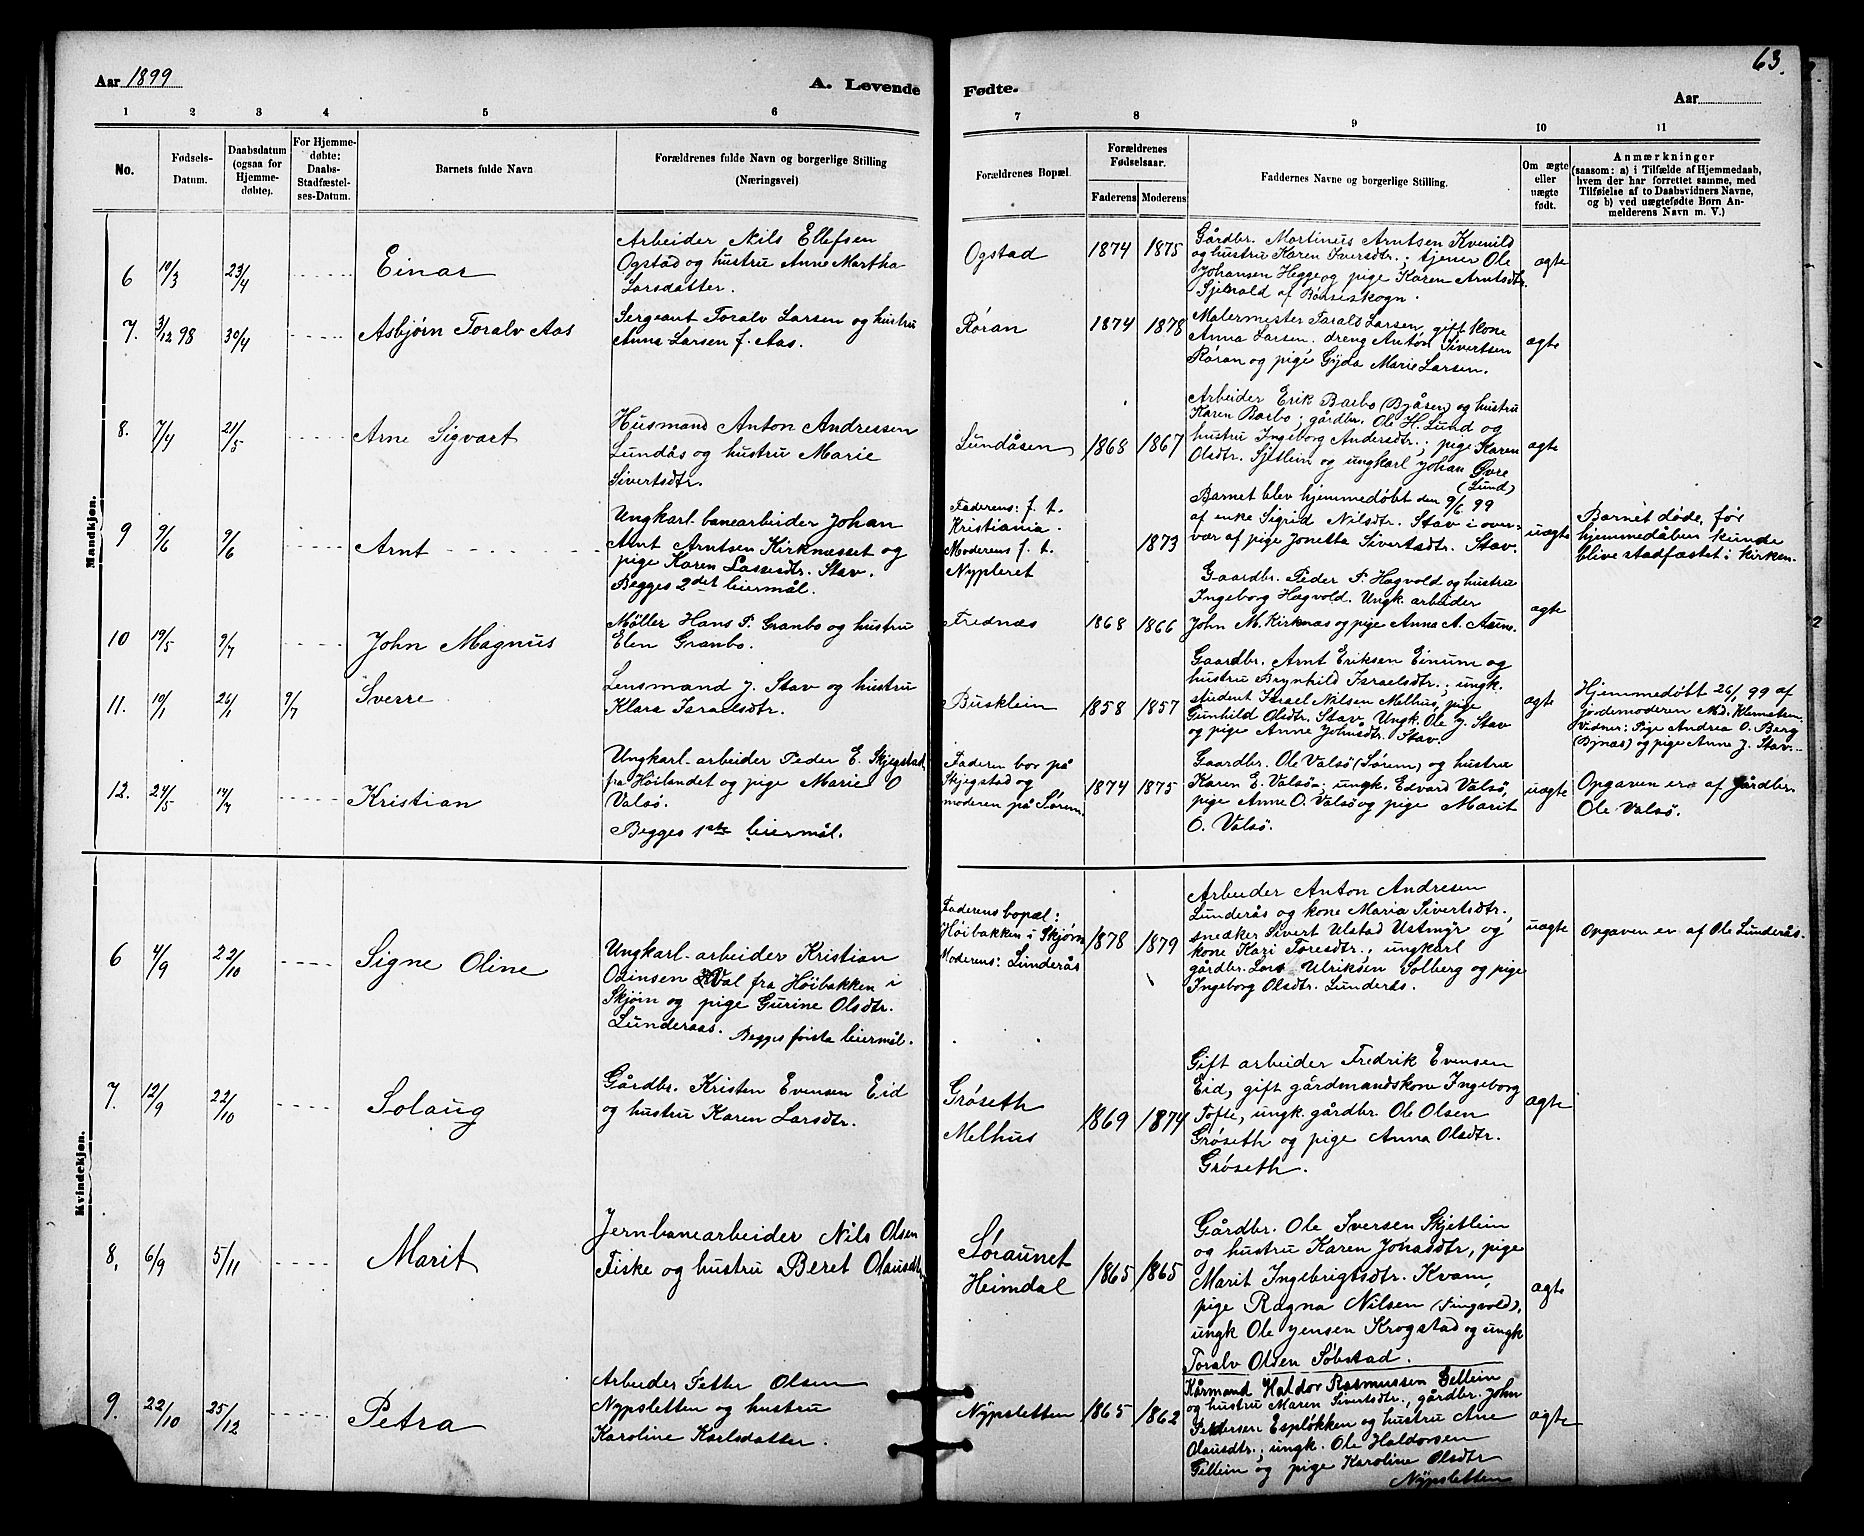 Aar 1899
A. Levende
Fødte.
63.
Aar
1
2
3
4
5
6
7
8
9
10
11
No.
Fødsels-
Datum.
Daabsdatum
(ogsaa for
Hjemme-
døbte).
For Hjemme-
døbte:
Daabs-
Stadfæstel-
ses-Datum.
Barnets fulde Navn
Forældrenes fulde Navn og borgerlige Stilling
(Næringsvei)
Forældrenes Bopæl.
Forældrenes
Fødselsaar.
Faderens
Moderens
Faddernes Navne og borgerlige Stilling.
Om ægte
eller
uægte
født.
Anmærkninger
(saasom: a) i Tilfælde af Hjemmedaab,
hvem der har forrettet samme, med
Tilføielse af to Daabsvidners Navne,
og b) ved uægtefødte Børn An-
melderens Navn m. V.)
Mandkjøn.
6
10/3
23/4
Einar
Arbeider Nils Ellefsen
Ogstad og hustru Anne Martha
Larsdatter.
Ogstad
1874
1875
Gårdbr. Martinus Arntsen Kvenild
og hustru Karen Iversdtr.; tjener Ole
Johansen Hegge og pige Karen Arntsdtr.
Sjetnald af Bønseskogn.
ægte
7.
3/12 98
30/4
Asbjørn Toralv Aas
Sergeant Toralv Larsen og hustru
Anna Larsen f. Aas.
Røran
1874
1878
Malermester Tarald Larsen, gift kone
Anna Larsen. dreng Anton Sivertsen
Røran og pige Gyda Marie Larsen.
ægte
8.
7/4
21/5
Arne Sigvart
Husmand Anton Andressen
Lundås og hustru Marie
Sivertsdtr.
Lundåsen
1868
1867
Arbeider Erik Barbo (Bjåsen) og hustru
Karen Barbo; gårdbr. Ole H. Lund og
hustru Ingeborg Andersdtr.; pige Karen
Olsdtr. Sjetlein og ungkarl Johan Øvre
(Lund)
ægte
9
9/6
9/6
Arnt
Ungkarl-banearbeider Johan
Arnt Arntsen Kirknæsset og
pige Karen Lassesdtr. Stav.
Begges 2det leiermål.
Faderens: f. t.
Kristiania.
Moderens f. t.
Nypleret
1873
Barnet blev hjemmedøbt den 9/6 99
af enke Sigrid Nilsdtr. Stav i over-
vær af pige Jonetta Sivertsdtr. Stav.
uægte
Barnet døde, før
hjemmedåben kunde
blive stadfæstet i kirken.
10
19/5
9/7
John Magnus
Møller Hans P. Granbo og hustru
Elen Granbo.
Frednæs
1868
1866
Gaardbr. Peder P. Hægvold og hustru
Ingeborg Hægvold. Ungk. arbeider
John M. Kirknæs og pige Anna A. Aune.
ægte
11.
10/1
26/1
9/7
Sverre
Lensmand J. Stav og hustru
Klara Israelsdtr.
Busklein
1858
1857
Gaardbr. Arnt Eriksen Einum og
hustru Brynhild Israelsdtr.; ungk.
student Israel Nilsen Melhus, pige
Gunhild Olsdtr. Stav. Ungk. Ole J. Stav
og pige Anne Johnsdtr. Stav.
ægte
Hjemmedøbt 26/1 99 af
jordemoderen Md. Klemetsen.
Vidner: Pige Andrea O. Berg
(Bjnæs) og pige Anne J. Stav.
12.
24/5
14/7
Kristian
Ungkarl-arbeider Peder E. Skjegstad
fra Høilandet og pige Marie O
Valsø.
Begges 1ste leiermål.
Faderen bor på
Skjegstad og
moderen på Sørem.
1874
1875
Gaardbr. Ole Valsø (Sørem) og hustru
Karen E. Valsø; ungk. Edvard Valsø,
pige Anne O. Valsø og pige Marit
O. Valsø.
uægte
Opgaven er af Gårdbr.
Ole Valsø.
Kvindekjøn.
6
4/9
22/10
Signe Oline
Ungkarl-arbeider Kristian
Odinsen Hval fra Høibakken i
Skjørn og pige Gurine Olsdtr.
Lunderaas. Begges første leiermål.
Faderens bopæl:
Høibakken i Skjørn
Moderens: Lunderås
1878
1879
Arbeider Anton Andresen
Lunderås og kone Maria Sivertsdtr.,
snedker Sivert Ulstad Ustmyr og
kone Kari Toresdtr., ungkarl
gårdbr. Lars Ulriksen Solberg og pige
Ingeborg Olsdtr. Lunderås.
uægte
Opgaven er af Ole Lunderås.
7.
12/9
22/10
Solaug
Gårdbr. Kristen Evensen Eid
og hustru Karen Larsdtr.
Grøseth
Melhus
1869
1874
Gift arbeider Fredrik Evensen
Eid, gift gårdmandskone Ingeborg
Tofte, ungk. gårdbr. Ole Olsen
Grøseth og pige Anna Olsdtr.
Grøseth.
ægte
8.
6/9
5/11
Marit
Jernbanearbeider Nils Olsen
Fiske og hustru Beret Olausdtr.
Søraunet
Heimdal
1865
1865
Gårdbr. Ole Iversen Skjetlein
og hustru Karen Jonasdtr, pige
Marit Ingebrigtsdtr. Kvam,
pige Ragna Nilsen (Tingvold),
ungk Ole Jensen Krogstad og ungk
Toralv Olsen Søbstad.
ægte
9.
22/10
25/12
Petra
Arbeider Petter Olsen
Nypsletten og hustru
Karoline Karlsdatter.
Nypsletten
1865
1862
Kårmand Haldor Rasmussen Gellein
og hustru Maren Sivertsdtr., gårdbr. John
Pedersen Espløkken og hustru Ane
Olausdtr.; ungk. Ole Haldorsen
Gellein og pige Karoline Olsdtr
Nypsletten
ægte